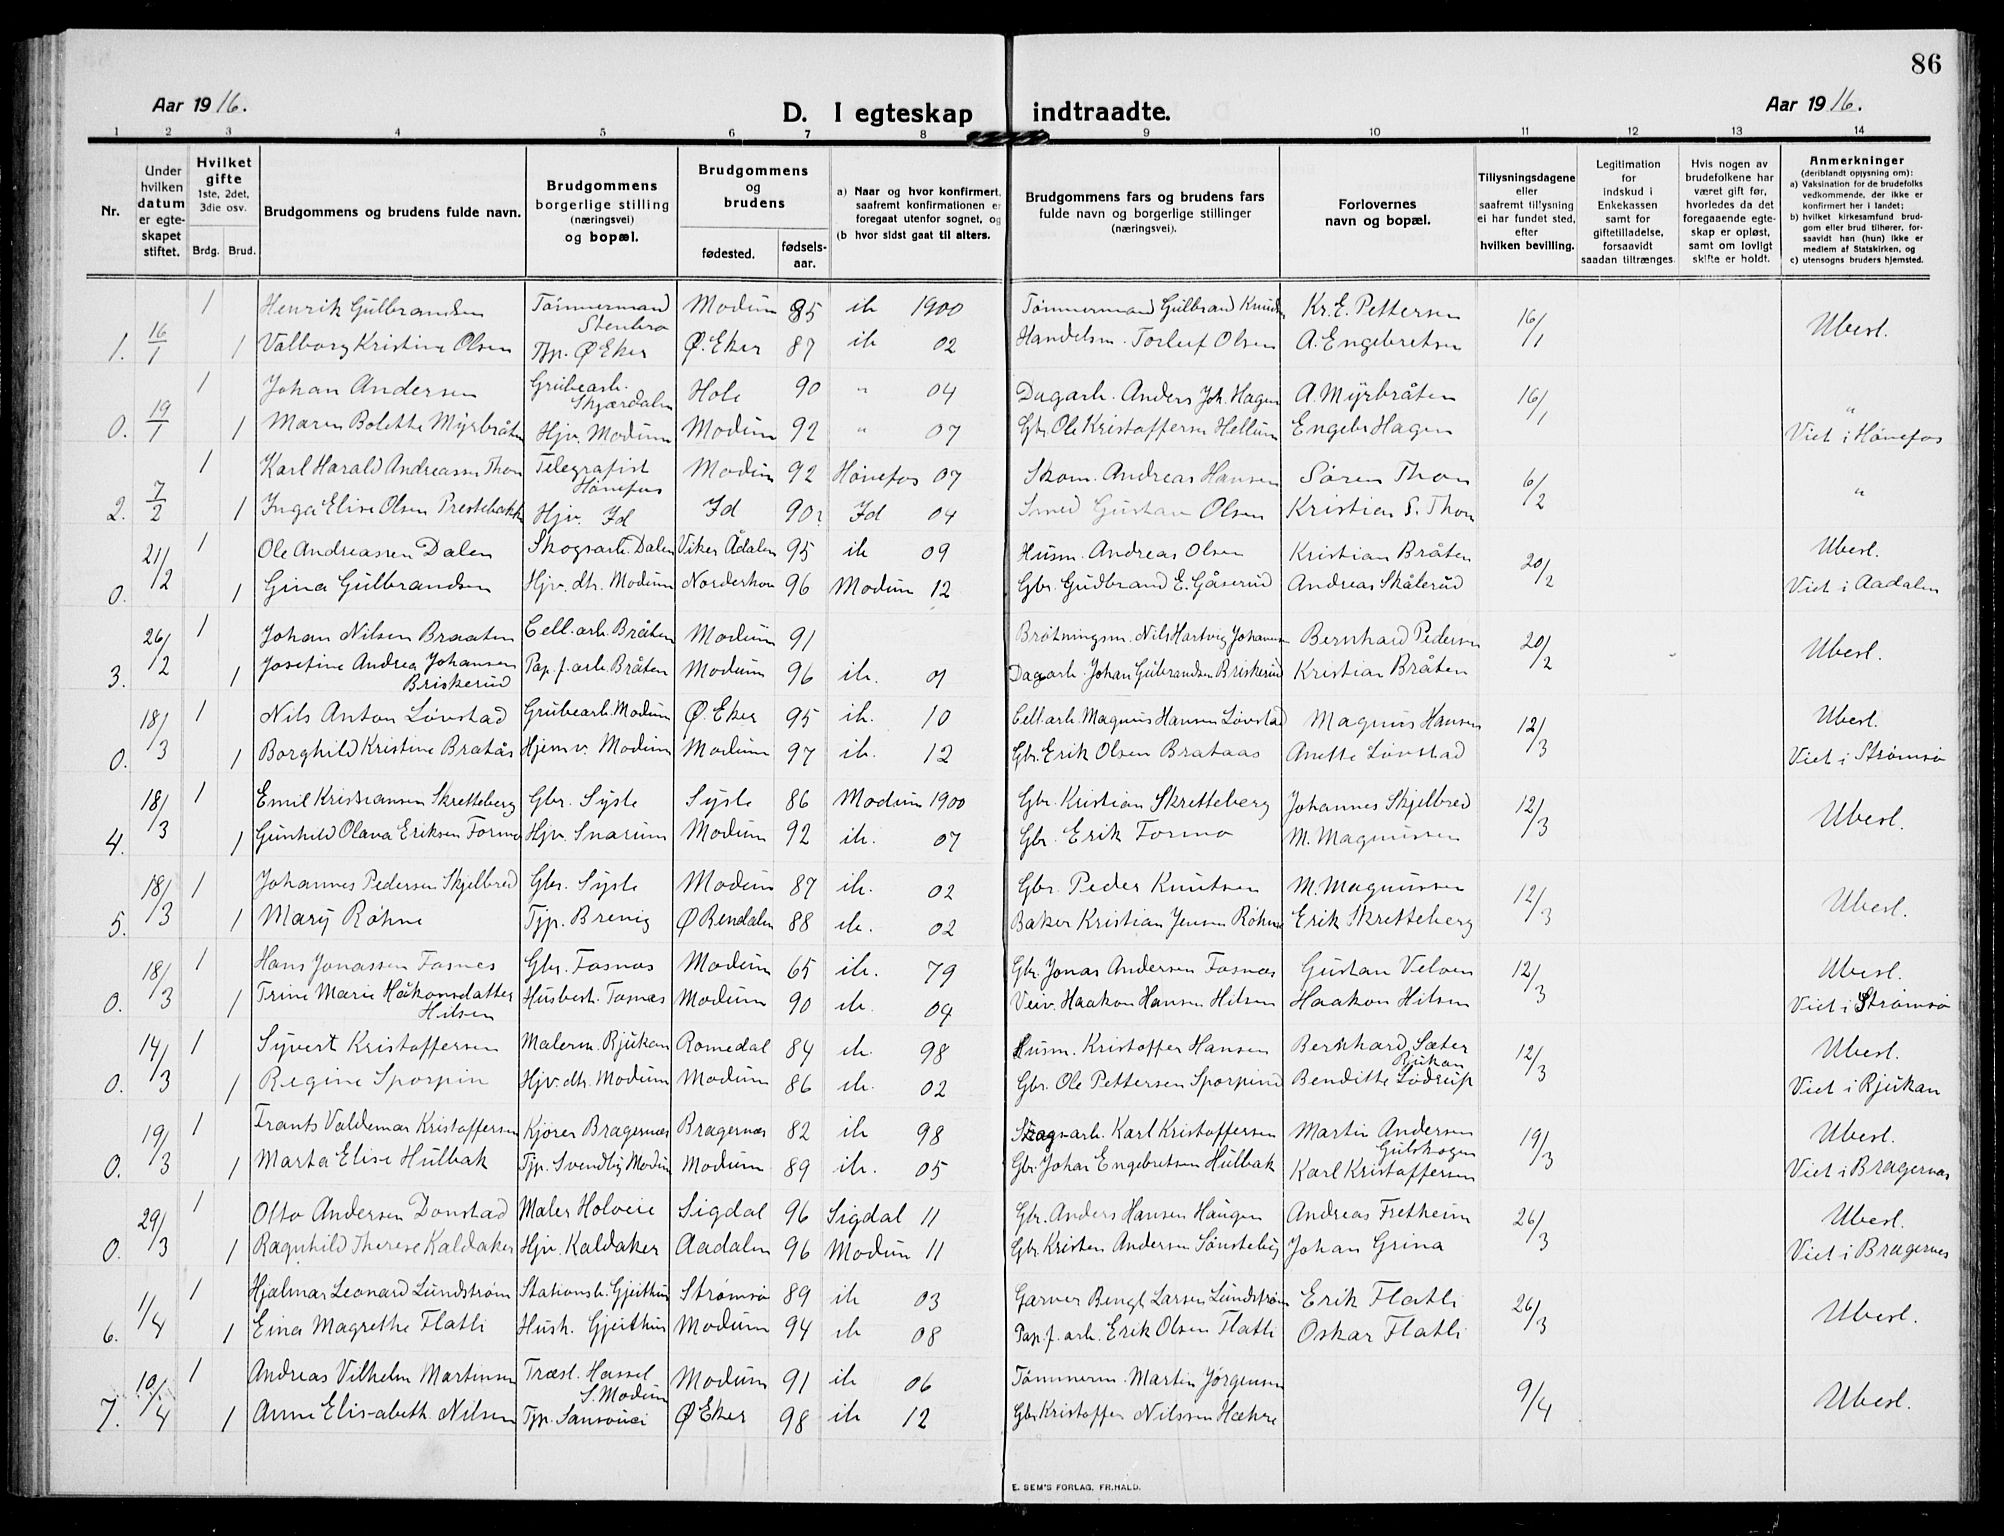 86
Aar 1916. D. I egteskap indtraadte. Aar 1916.
1 2 3 4 5 6 7 8 9 10 11 12 13 14
Nr.
Under hvilken datum er egte-skapet stiftet.
Hvilket gifte 1ste, 2det, 3die osv.
Brdg. Brud.
Brudgommens og brudens fulde navn.
Brudgommens borgerlige stilling (næringsvei) og bopæl.
Brudgommens og brudens
fødested. fødsels-aar.
a) Naar og hvor konfirmert, saafremt konfirmationen er foregaat utenfor sognet, og
(b hvor sidst gaat til alters.
Brudgommens fars og brudens fars fulde navn og borgerlige stillinger (næringsvei).
Forlovernes navn og bopæl.
Tillysningsdagene eller saafremt tillysning ei har fundet sted, efter hvilken bevilling.
Legitimation for indskud i Enkekassen samt for giftetilladelse, forsaavidt saadan tiltrænges.
Hvis nogen av brudefolkene har været gift før, hvorledes da det foregaaende egte-skap er opløst, samt om lovligt skifte er holdt.
Anmerkninger (deriblandt opysning om):
a) Vaksination for de brudefolks vedkommende, der ikke er konfirmert her i landet;
b) hvilket kirkesamfund brud-gom eller brud tilhører, for-saavidt han (hun) ikke er medlem af Statskirken, og
c) utensogns bruders hjemsted.
1 Henrik Gulbrandsen Tømmermand Stenbro Modum 85 ib 1900 Tømmermand Gulbrand Knuds Kr. E. Pettersen
1. 16/1 1 Valborg Kristine Olsen Tjp. Ø Eker Ø. Eker 87 ib 02 Handelsm. Torleif Olsen A. Engebretsen 16/1 Ubesl.
1 Johan Andersen Grubearb. Skjærdalen Hole 90 " 04 Dagarb. Anders Joh. Hagen A. Myrbråten
0. 19/1 1 Maren Bolette Myrbråten Hjv. Modum Modum 92 " 07 Gbr. Ole Kristoffersen Hellum Engebr Hagen 16/1 " Viet i Hønefos
1 Karl Harald Andreassen Thon Telegrafist Hønefos Modum 92 Hønefos 07 Skom. Andreas Hansen Søren Thon
2. 7/2 1 Inga Elise Olsen Prestebakke Hjv. Id Id 90? Id 04 Smed Gustav Olsen Kristian S. Thon 6/2 "
1 Ole Andreassen Dalen Skogsarb. Dalen Viker Ådalen 95 ib 09 Husm. Andreas Olsen Kristian Bråten Ubesl.
0. 21/2 1 Gina Gulbrandsen Hjv. dtr. Modum Norderhov 96 Modum 12 Gbr. Gudbrand E. Gåserud Andreas Skålerud 20/2 Viet i Aadalen
1 Johan Nilsen Braaten Cell. arb. Bråten Modum 91 Brøtningsm. Nils Hartvig Johansen Bernhard Pedersen
3. 26/2 1 Josefine Andrea Johansen Briskerud Pap. f. arb. Bråten Modum 96 ib. 01 Dagarb. Johan Gulbrandsen Briskerud Kristian Bråten 20/2 Ubesl.
1 Nils Anton Løvstad Grubearb. Modum Ø. Eker 95 ib. 10 Cell. arb. Magnus Hansen Løvstad Magnus Hansen Ubesl.
0. 18/3 1 Borghild Kristine Bratås Hjemv. Modum Modum 97 ib. 12 Gbr. Erik Olsen Brataas Anette Løvstad 12/3 Viet i Strømsø
1 Emil Kristiansen Skretteberg Gbr. Sysle Sysle 86 Modum 1900 Gbr. Kristian Skretteberg Johannes Skjelbred
4. 18/3 1 Gunhild Olava Eriksen Formo Hjv. Snarum Modum 92 ib. 07 Gbr. Erik Formo M. Magnussen 12/3 Ubesl.
1 Johannes Pedersen Skjelbred Gbr. Sysle Modum 87 ib. 02 Gbr. Peder Knutsen M. Magnussen
5. 18/3 1 Mary Røhne Tjp. Brevig Ø Rendalen 88 ib. 02 Baker Kristian Jensen Røhne Erik Skretteberg 12/3 Ubesl.
1 Hans Jonassen Fosnes Gbr. Fosnæs Modum 65 ib. 79 Gbr. Jonas Andersen Fosnæs Gustav Velven Ubesl.
0. 18/3 1 Trine Marie Håkonsdatter Hilsen Husbest. Fosnæs Modum 90 ib. 04 Veiv. Haakon Hansen Hilsen Haakon Hilsen 12/3 Viet i Strømsø
1 Syvert Kristoffersen Malerm. Rjukan Romedal 84 ib. 98 Husm. Kristoffer Hansen Bernhard Sæter Rjukan Ubesl.
0. 14/3 1 Regine Sporpin Hjv. dtr. Modum Modum 86 ib. 02 Gbr. Ole Pettersen Sporpind Benditte Lødrup 12/3 Viet i Rjukan
1 Frants Valdemar Kristoffersen Kjører Bragernæs Bragernæs 82 ib 98 Skogsarb. Karl Kristoffersen Martin Andersen Gulskogen Ubesl.
0. 19/3 1 Marta Elise Hulbak Tjp. Svendby Modum Modum 89 ib. 05 Gbr. Johan Engebretsen Hulbak Karl Kristoffersen 19/3 Viet i Bragernæs
1 Otto Andersen Donstad Maler Holveie Sigdal 96 Sigdal 11 Gbr. Anders Hansen Haugen Andreas Fretheim Ubesl.
0. 29/3 1 Ragnhild Therese Kaldaker Hjv. Kaldaker Aadalen 96 Modum 11 Gbr. Kristen Andersen Sønsteby Johan Grina 26/3 Viet i Bragernes
1 Hjalmar Leonard Lundstrøm Stationsb. Gjeithus Strømsø 89 ib 03 Garver Bengt Larsen Lundstrøm Erik Flatli
6. 1/4 1 Eina Magrethe Flatli Hush. Gjeithus Modum 94 ib 08 Pap. f. arb. Erik Olsen Flatli Oskar Flatli 26/3 Ubesl.
1 Andreas Vilhelm Martinsen Træsl. Hassel S. Modum Modum 91 ib 06 Tømmerm. Martin Jørgensen
7. 10/4 1 Anne Elisabeth Nilsen Tjp. Sansouci Ø Eker 98 ib 12 Gbr Kristoffer Nilssen Hækre 9/4 Ubesl.
E. SEM'S FORLAG, FR.HALD.